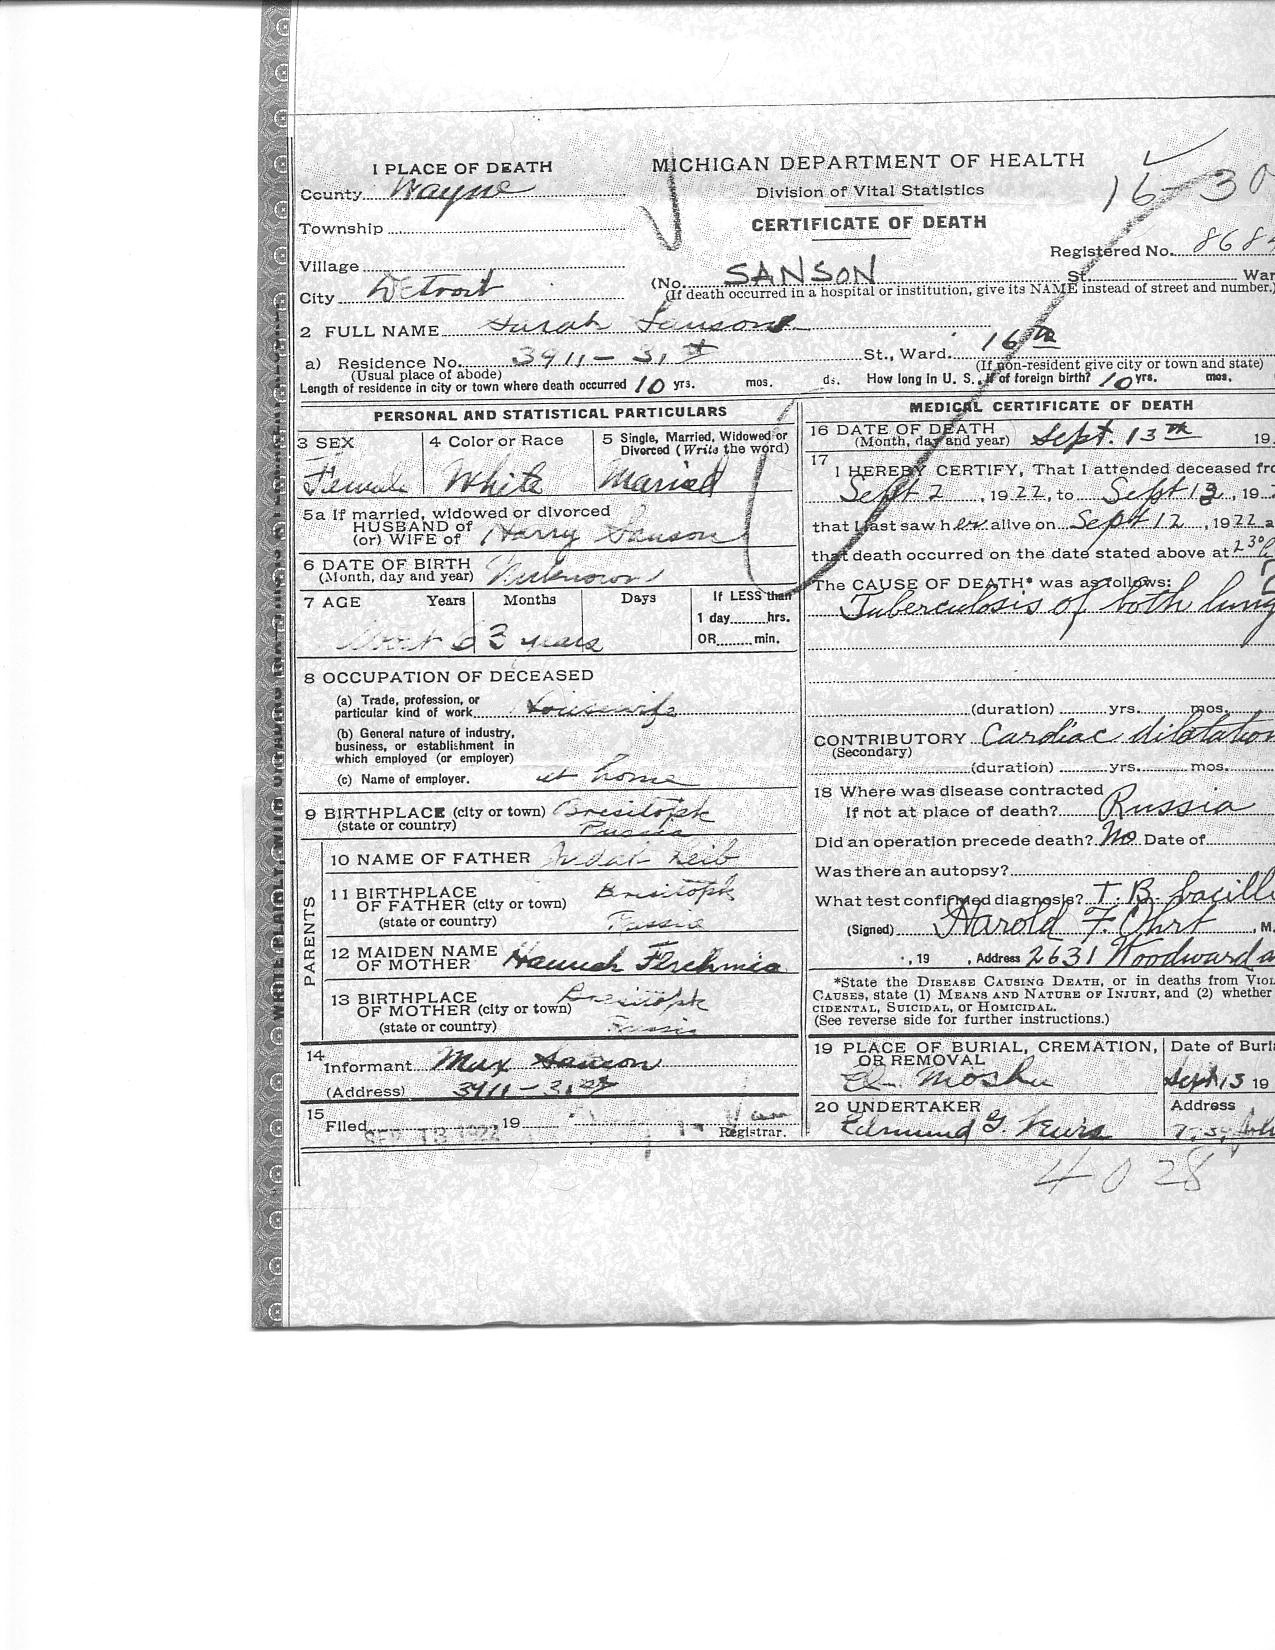 1 PLACE OF DEATH
County Wayne
Township
Village
City Detroit
MICHIGAN DEPARTMENT OF HEALTH
Division of Vital Statistics
CERTIFICATE OF DEATH
16-30
Registered No. 868
(No. SANSON St. War
(If death occurred in a hospital or institution, give its NAME instead of street and number.)
2 FULL NAME Sarah Sanson
a) Residence No. 3911 - 31st St., Ward. 16th
(Usual place of abode) (If non-resident give city or town and state)
Length of residence in city or town where death occurred 10 yrs. mos. ds. How long in U. S., if of foreign birth? 10 yrs. mos.
PERSONAL AND STATISTICAL PARTICULARS
3 SEX
Female
4 Color or Race
White
5 Single, Married, Widowed or
Divorced (Write the word)
Married
5a If married, widowed or divorced
HUSBAND of
(or) WIFE of Harry Sanson
6 DATE OF BIRTH
(Month, day and year) Unknown
7 AGE Years Months Days If LESS than
1 day hrs.
OR min.
About 63 years
8 OCCUPATION OF DECEASED
(a) Trade, profession, or
particular kind of work Housewife
(b) General nature of industry,
business, or establishment in
which employed (or employer)
(c) Name of employer. at home
9 BIRTHPLACE (city or town) Bresitopk
(state or country) Russia
PARENTS
10 NAME OF FATHER Judah Leib
11 BIRTHPLACE
OF FATHER (city or town) Bresitopk
(state or country) Russia
12 MAIDEN NAME
OF MOTHER Hannah
13 BIRTHPLACE
OF MOTHER (city or town) Bresitopk
(state or country) Russia
14
Informant Max Sanson
(Address) 3911 - 31st
15
Filed SEP 13 1922 19
Registrar.
MEDICAL CERTIFICATE OF DEATH
16 DATE OF DEATH
(Month, day and year) Sept. 13th 19
17
I HEREBY CERTIFY, That I attended deceased fro
Sept 2, 1922, to Sept 13, 19
that I last saw her alive on Sept 12, 1922 a
that death occurred on the date stated above at 230
The CAUSE OF DEATH* was as follows:
Tuberculosis of both lung
(duration) yrs. mos.
CONTRIBUTORY Cardiac dilatation
(Secondary)
(duration) yrs. mos.
18 Where was disease contracted
If not at place of death? Russia
Did an operation precede death? No Date of
Was there an autopsy?
What test confirmed diagnosis? T. B. bacilli
(Signed) Harold F. Ohrt, M.
, 19 , Address 2631 Woodward a
*State the DISEASE CAUSING DEATH, or in deaths from VIOL
CAUSES, state (1) MEANS AND NATURE OF INJURY, and (2) whether
CIDENTAL, SUICIDAL, or HOMICIDAL.
(See reverse side for further instructions.)
19 PLACE OF BURIAL, CREMATION,
OR REMOVAL
Date of Buri
Sept 13 19
20 UNDERTAKER
Edmund G.
Address
4028